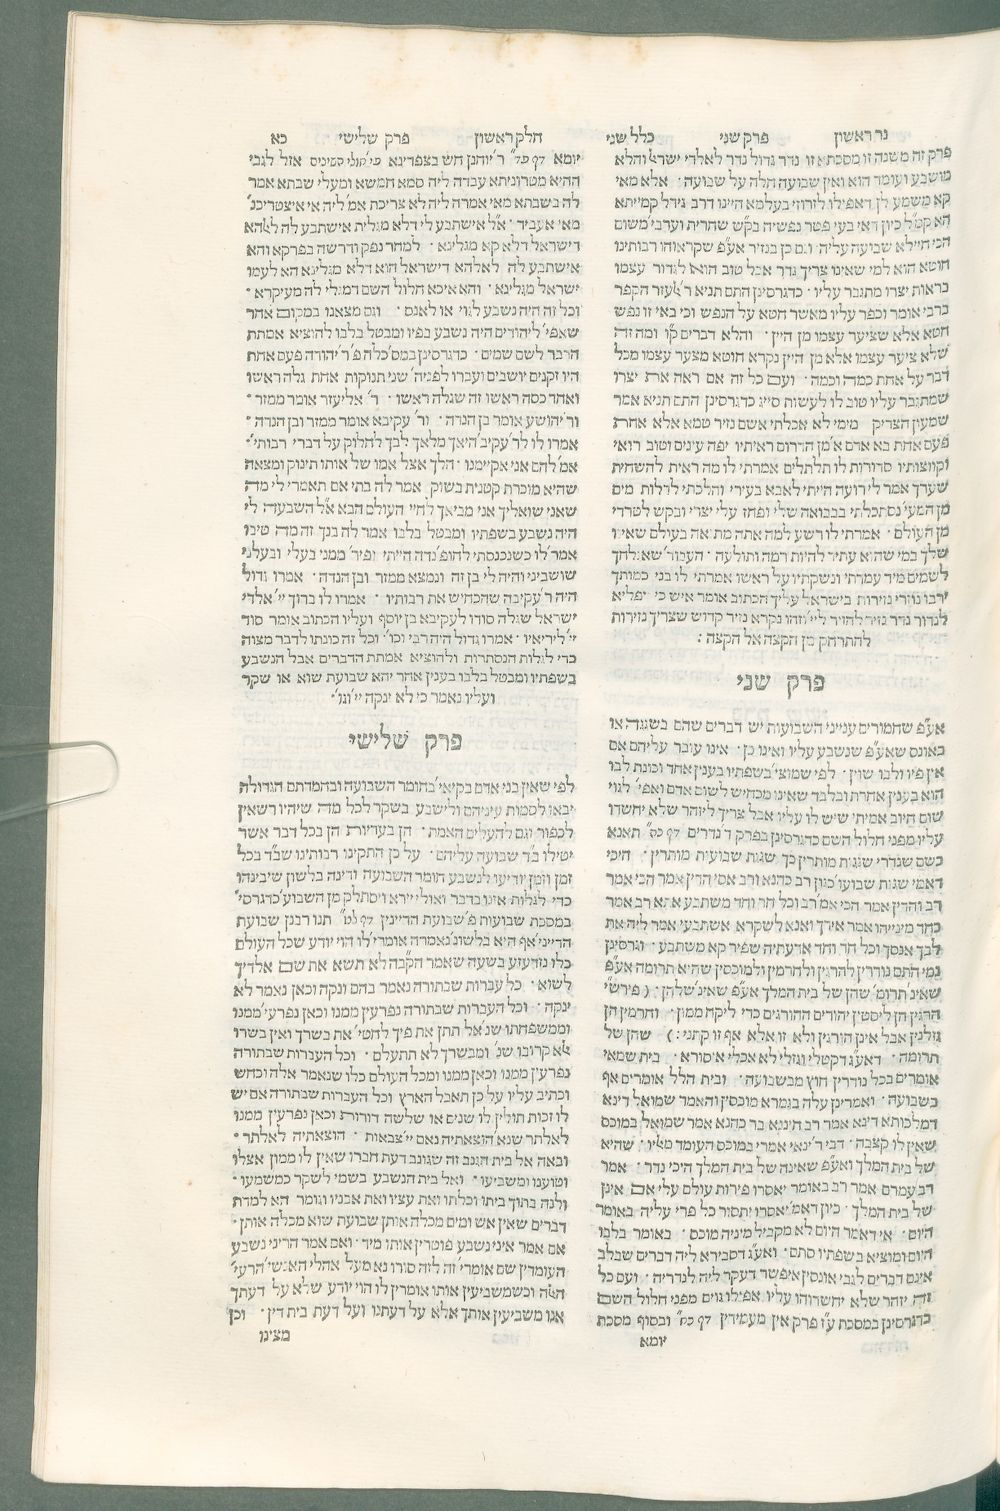 נר ראשון פרק שני כלל שני חלק ראשון פרק שלישי כא
פרק זה משנה זו מסכתא זו נדר גדול נדר לאלדי ישראל והלא
מושבע ועומד הוא ואין שבועה חלה על שבועה אלא מאי
קא משמע לן דאפילו לזרוזי בעלמא היינו דרב גידל קמייתא
הא קמ"ל כיון דאי בעי פטר נפשיה בק"ש שחרית וערבי' משום
הכי חיילא שבועה עליה וגם כן בנזיר אע"פ שקראוהו רבותינו
חוטא הוא למי שאינו צריך גדר אבל טוב הוא לו לגדור עצמו
בראות יצרו מתגבר עליו כדגרסינן התם תניא ר' אלעזר הקפר
ברבי אומר וכפר עליו מאשר חטא על הנפש וכי באי זו נפש
חטא אלא שציער עצמו מן היין והלא דברים ק"ו ומה זה
שלא ציער עצמו אלא מן היין נקרא חוטא מצער עצמו מכל
דבר על אחת כמה וכמה ועם כל זה אם ראה את יצרו
שמתגבר עליו טוב לו לעשות סייג כדגרסינן התם תניא אמר
שמעון הצדיק מימי לא אכלתי אשם נזיר טמא אלא אחת
פעם אחת בא אדם א' מן הדרום ראיתיו יפה עינים וטוב רואי
וקווצותיו סדורות לו תלתלים אמרתי לו מה ראית להשחית
שערך אמר לי רועה הייתי לאבא בעירי והלכתי לדלות מים
מן המעי' נסתכלתי בבבואה שלי ופחז עלי יצרי ובקש לטרדי
מן העולם אמרתי לו רשע למה אתה מתגאה בעולם שאינו
שלך במי שהוא עתיד להיות רמה ותולעה העבוד' שאגלחך
לשמים מיד עמדתי ונשקתיו על ראשו אמרתי לו בני כמותך
ירבו נוזרי נזירות בישראל עליך הכתוב אומר איש כי יפליא
לנדור נדר נזיר להזיר ליי' וזהו נקרא נזיר קדוש שצריך נזירות
להתרחק מן הקצה אל הקצה :
פרק שני
אע"פ שחמורים ענייני השבועות יש דברים שהם בשגגה או
באונס שאע"פ שנשבע עליו ואינו כן אינו עובר עליהם אם
אין פיו ולבו שוין לפי שמוצי' בשפתיו בענין אחד וכונת לבו
הוא בענין אחרת ובלבד שאינו מכחיש לשום אדם ואפי' לגוי
שום חיוב אמיתי שיש לו עליו אבל צריך ליזהר שלא יחשדו
עליו מפני חלול השם כדגרסינן בפרק ד' נדרים דף כה" תאנא
כשם שנדרי שגגות מותרין כך שגות שבועות מותרין היכי
דאמי שגות שבועו' כגון רב כהנא ורב אסי הדין אמר הכי אמר
רב והדין אמר הכי אמ' רב וכל חד וחד משתבע אתא רב אמר
כחד מינייהו אמר אידך ואנא לשקרא אשתבעי אמר ליה את
לבך אנסך וכל חד וחד אדעתיה שפיר קא משתבע וגרסינן
נמי התם נודרין להרגין ולחרמין ולמוכסין שהיא תרומה אע"פ
שאינ' תרומ' שהן של בית המלך אע"פ שאינ' שלהן ( פירש"י
הרגין הן ליסטין יהודים ההורגים כדי ליקח ממון וחרמין הן
גזלנין אבל אינן הורגין ולא זו אלא אף זו קתני : ) שהן של
תרומה דאע"ג דקטלי וגזלי לא אכלי איסורא בית שמאי
אומרים בכל נודרין חוץ מבשבועה ובית הלל אומרים אף
בשבועה ואמרינן עלה בגמרא מוכסין והאמר שמואל דינא
דמלכותא דינא אמר רב חיננא בר כהנא אמר שמואל במוכס
שאין לו קצבה דבי ר' ינאי אמרי במוכס העומד מאליו שהיא
של בית המלך ואע"פ שאינה של בית המלך היכי נדר אמר
רב עמרם אמר רב באומר יאסרו פירות עולם עלי אם אינן
של בית המלך כיון דאמ' יאסרו יתסור כל פרי עליה באומר
היום אי דאמר היום לא מקביל מיניה מוכס באומר בלבו
היום ומוציא בשפתיו סתם ואע"ג דסבירא ליה דברים שבלב
אינם דברים לגבי אונסין איפשר דעקר ליה לנדריה ועם כל
זה יזהר שלא יחשדוהו עליו אפילו גוים מפני חלול השם
כדגרסינן במסכת ע"ז פרק אין מעמידין דף כח" ובסוף מסכת
יומא
יומא דף פד" ר' יוחנן חש בצפדינא פי' חולי השינים אזל לגבי
ההיא מטרוניתא עבדה ליה סמא חמשא ומעלי שבתא אמר
לה בשבתא מאי אמרה ליה לא צריכת אמ' ליה אי איצטריכנ'
מאי אעביד א"ל אישתבע לי דלא מגלית אישתבע לה לאלהא
דישראל דלא קא מגלינא למחר נפק ודרשה בפרקא והא
אישתבע לה לאלהא דישראל הוא דלא מגלינא הא לעמו
ישראל מגלינא והא איכא חלול השם דמגלי לה מעיקרא
וכל זה היה נשבע לגוי או לאנס וגם מצאנו במקום אחר
שאפי' ליהודים היה נשבע בפיו ומבטל בלבו להוציא אמתת
הדבר לשם שמים כדגרסינן במס' כלה פ' ר' יהודה פעם אחת
היו זקנים יושבים ועברו לפניה' שני תנוקות אחת גלה ראשו
ואחד כסה ראשו זה שגלה ראשו ר' אליעזר אומר ממזר
ור' יהושע אומר בן הנדה ור' עקיבא אומר ממזר ובן הנדה
אמרו לו לר' עקיב' היאך מלאך לבך לחלוק על דברי רבותי'
אמ' להם אני אקיימנו הלך אצל אמו של אותו תינוק ומצאה
שהיא מוכרת קטנית בשוק אמר לה בתי אם תאמרי לי מה
שאני שואליך אני מביאך לחיי העולם הבא א"ל השבעה לי
היה נשבע בשפתיו ומבטל בלבו אמר לה בנך זה מה טיבו
אמר' לו כשנכנסתי לחופ' נדה הייתי ופיר' ממני בעלי ובעלני
שושביני והיה לי בן זה ונמצא ממזר ובן הנדה אמרו גדול
היה ר' עקיבה שהכחיש את רבותיו אמרו לו ברוך יי' אלדי
ישראל שגלה סודו לעקיבא בן יוסף ועליו הכתוב אומר סוד
יי' ליריאיו אמרו גדול היה רבי וכו' וכל זה כונתו לדבר מצוה
כדי לגלות הנסתרות ולהוציא אמתת הדברים אבל הנשבע
בשפתיו ומבטל בלבו בענין אחר יהא שבועת שוא או שקר
ועליו נאמר כי לא ינקה יי' וגו'
פרק שלישי
לפי שאין בני אדם בקיאי' בחומר השבועה ובחמדתם הגדולה
יבאו לסמות עיניהם ולישבע בשקר לכל מדה שיהיו רשאין
לכפור וגם להעלים האמת הן בעדיות הן בכל דבר אשר
יטילו ב"ד שבועה עליהם על כן התקינו רבותינו שב"ד בכל
זמן וזמן יודיעו לנשבע חומר השבועה ודינה בלשון שיבינהו
כדי לגלות אזנו בדבר ואולי יירא ויסתלק מן השבוע' כדגרסי'
במסכת שבועות פ' שבועת הדיינין דף לח" תנו רבנן שבועת
הדייני' אף היא בלשונ' נאמרה אומרי' לו הוי יודע שכל העולם
כלו נזדעזע בשעה שאמר הקב"ה לא תשא את שם אלדיך
לשוא כל עברות שבתורה נאמר בהם ונקה וכאן נאמר לא
ינקה וכל העברות שבתורה נפרעין ממנו וכאן נפרעי' ממנו
וממשפחתו שנ' אל תתן את פיך לחטי' את בשרך ואין בשרו
אלא קרובו שנ' ומבשרך לא תתעלם וכל העברות שבתורה
נפרעין ממנו וכאן ממנו ומכל העולם כלו שנאמר אלה וכחש
וכתיב עליו על כן תאבל הארץ וכל העברות שבתורה אם יש
לו זכות תולין לו שנים או שלשה דורות וכאן נפרעין ממנו
לאלתר שנא' הוצאתיה נאם יי' צבאות הוצאתיה לאלתר
ובאה אל בית הגנב זה שגונב דעת חברו שאין לו ממון אצלו
וטוענו ומשביעו ואל בית הנשבע בשמי לשקר כמשמעו
ולנה בתוך ביתו וכלתו ואת עציו ואת אבניו וגומר הא למדת
דברים שאין אש ומים מכלה אותן שבועת שוא מכלה אותן
אם אמר איני נשבע פוטרין אותו מיד ואם אמר הריני נשבע
העומדין שם אומרי' זה לזה סורו נא מעל אהלי האנשי' הרעי'
האלה וכשמשביעין אותו אומרין לו הוי יודע שלא על דעתך
אנו משביעין אותך אלא על דעתנו ועל דעת בית דין וכן
מצינו